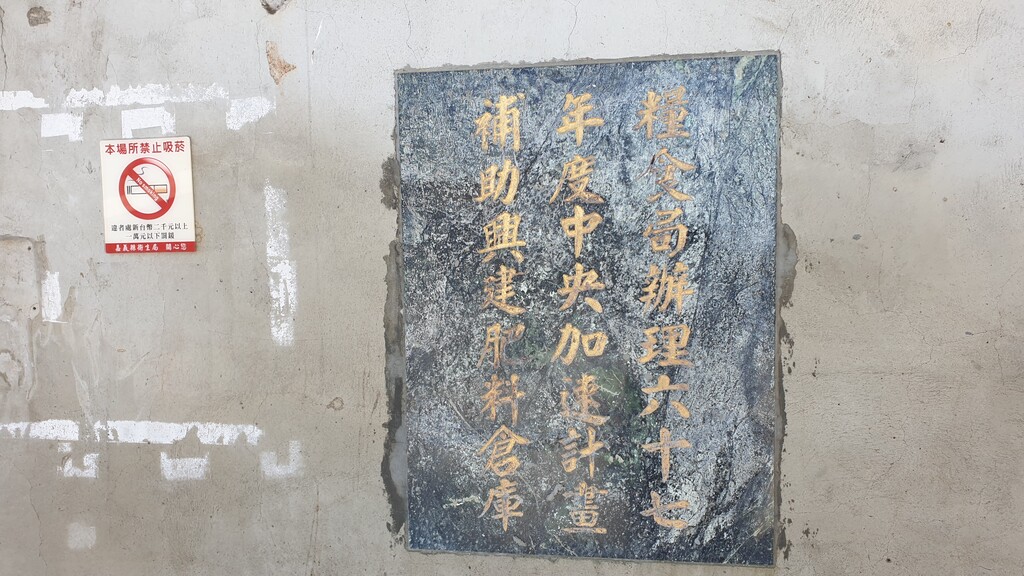 糧食局辦理六十七
年度中央加速計畫
補助興建肥料倉庫
本場所禁止吸菸
違者處新台幣二千元以上
一萬元以下罰鍰
嘉義縣衛生局 關心您